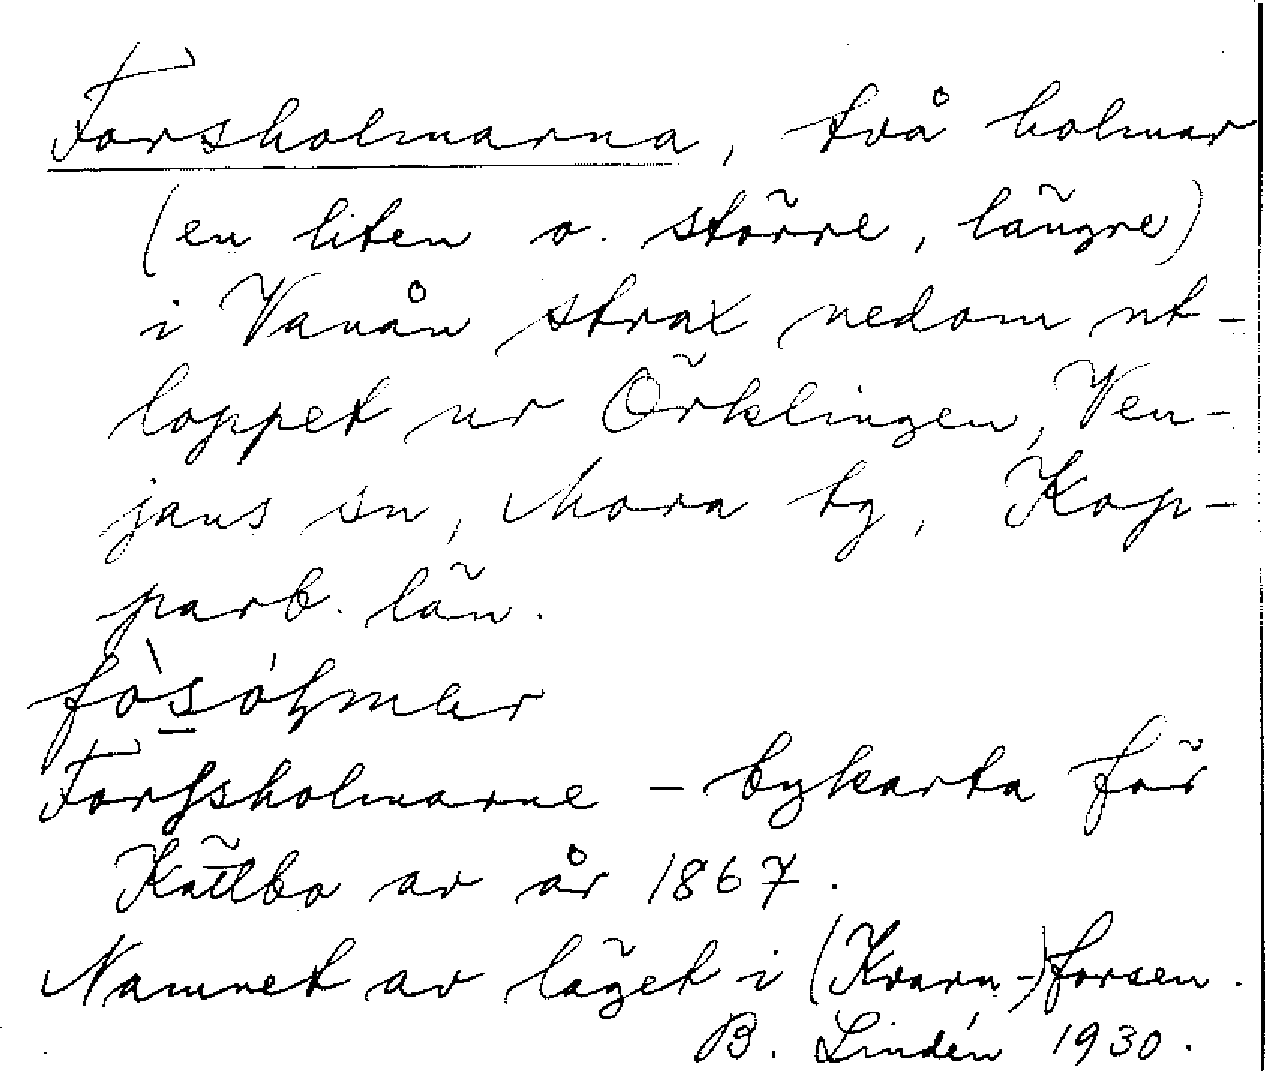 Forsholmarna, två holmar
(en liten o. större, längre)
i Vanån strax nedom ut-
loppet ur Örklingen, Ven-
jans sn, Mora tg, Kop-
parb. län.
Forssholmarne – bykarta för
Kättbo av år 1867.
Namnet av läget i (Kvarn-)forsen.
B. Lindén 1930.